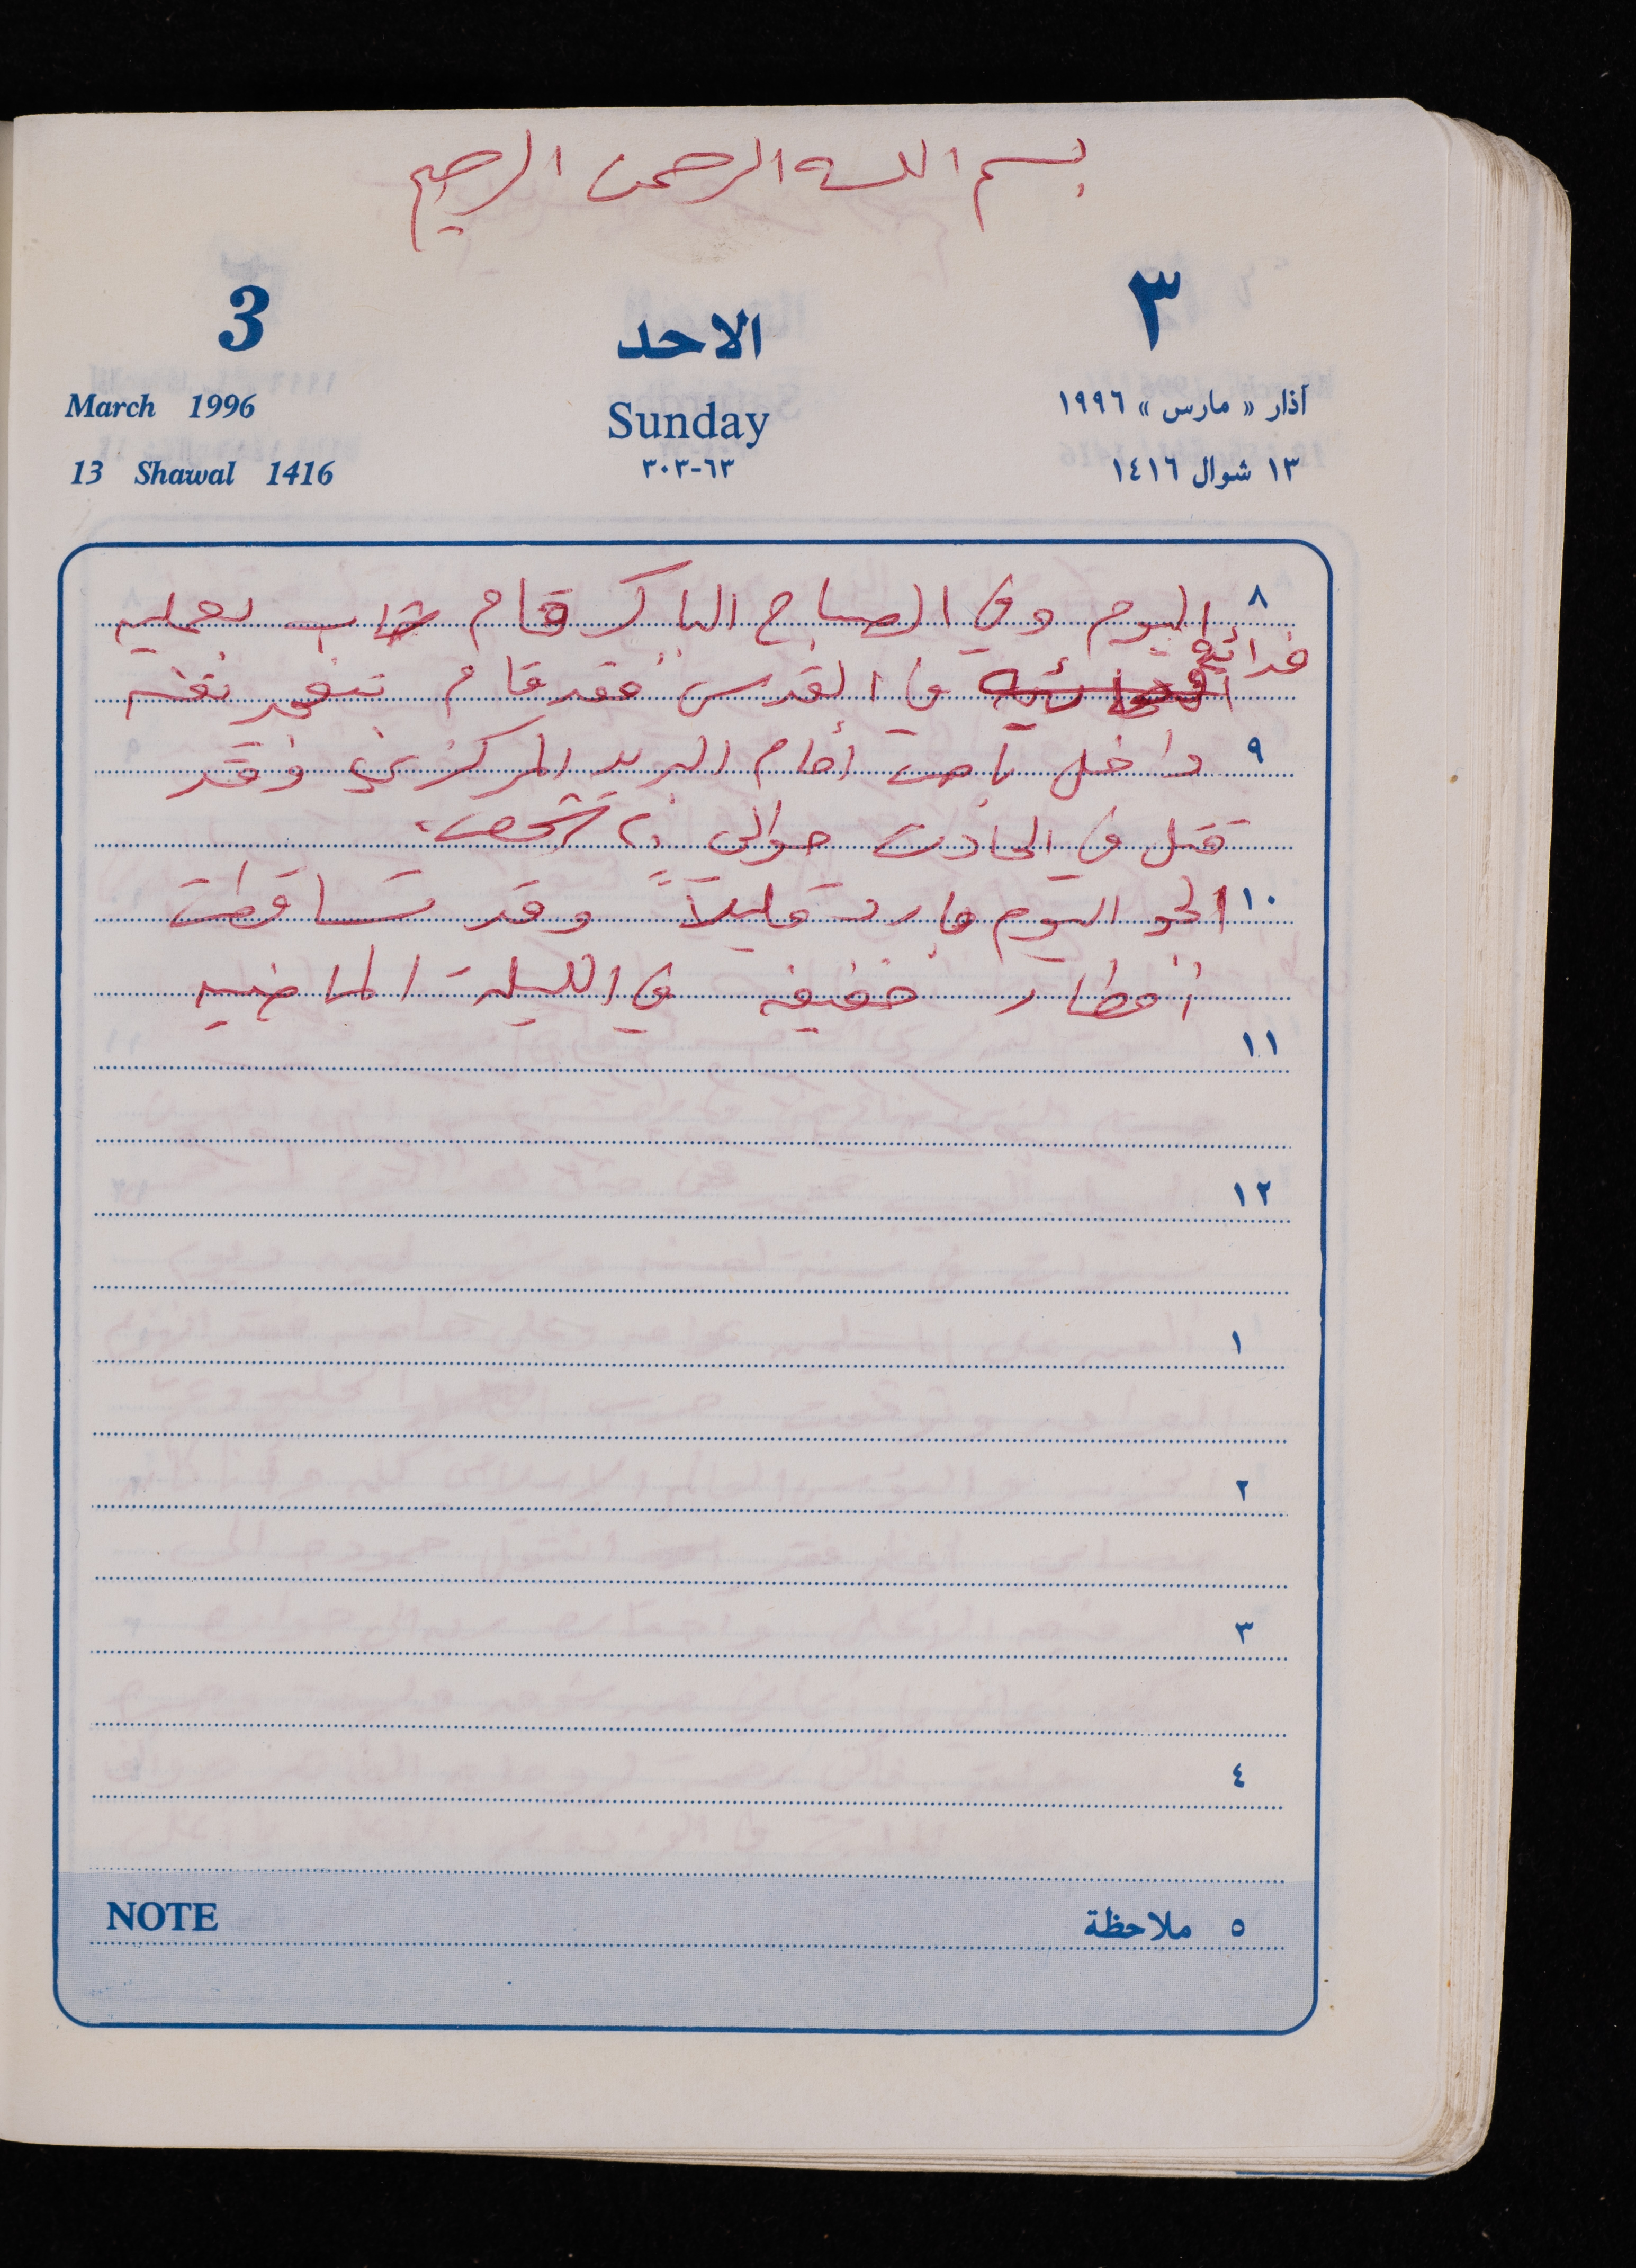 بسم الله الرحمن الرحيم
3 الاحد ٣
March 1996 Sunday آذار « مارس » ١٩٩٦
13 Shawal 1416 ٦٣-٣٠٣ ١٣ شوال ١٤١٦
٨ اليوم وفي الصباح الباكر قام شاب بعمليه
فدائية
في القدس فقد قام بتفجير نفسه
٩ داخل باص أمام البريد المركزي وقد
قتل في الحادث حوالي ٢٠ شخص.
١٠ الجو اليوم بارد قليلاً وقد تساقطت
أمطار خفيفه في الليلة الماضيه
١١
١٢
١
٢
٣
٤
NOTE ٥ ملاحظة